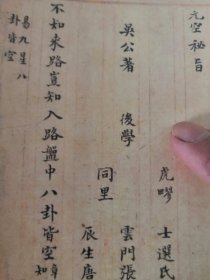 元空秘旨
吳公著
後學
同里
虎嘐
士選氏
雲門張
辰生唐
不知來路豈知入路盤中八卦皆空
易九星八
卦皆空